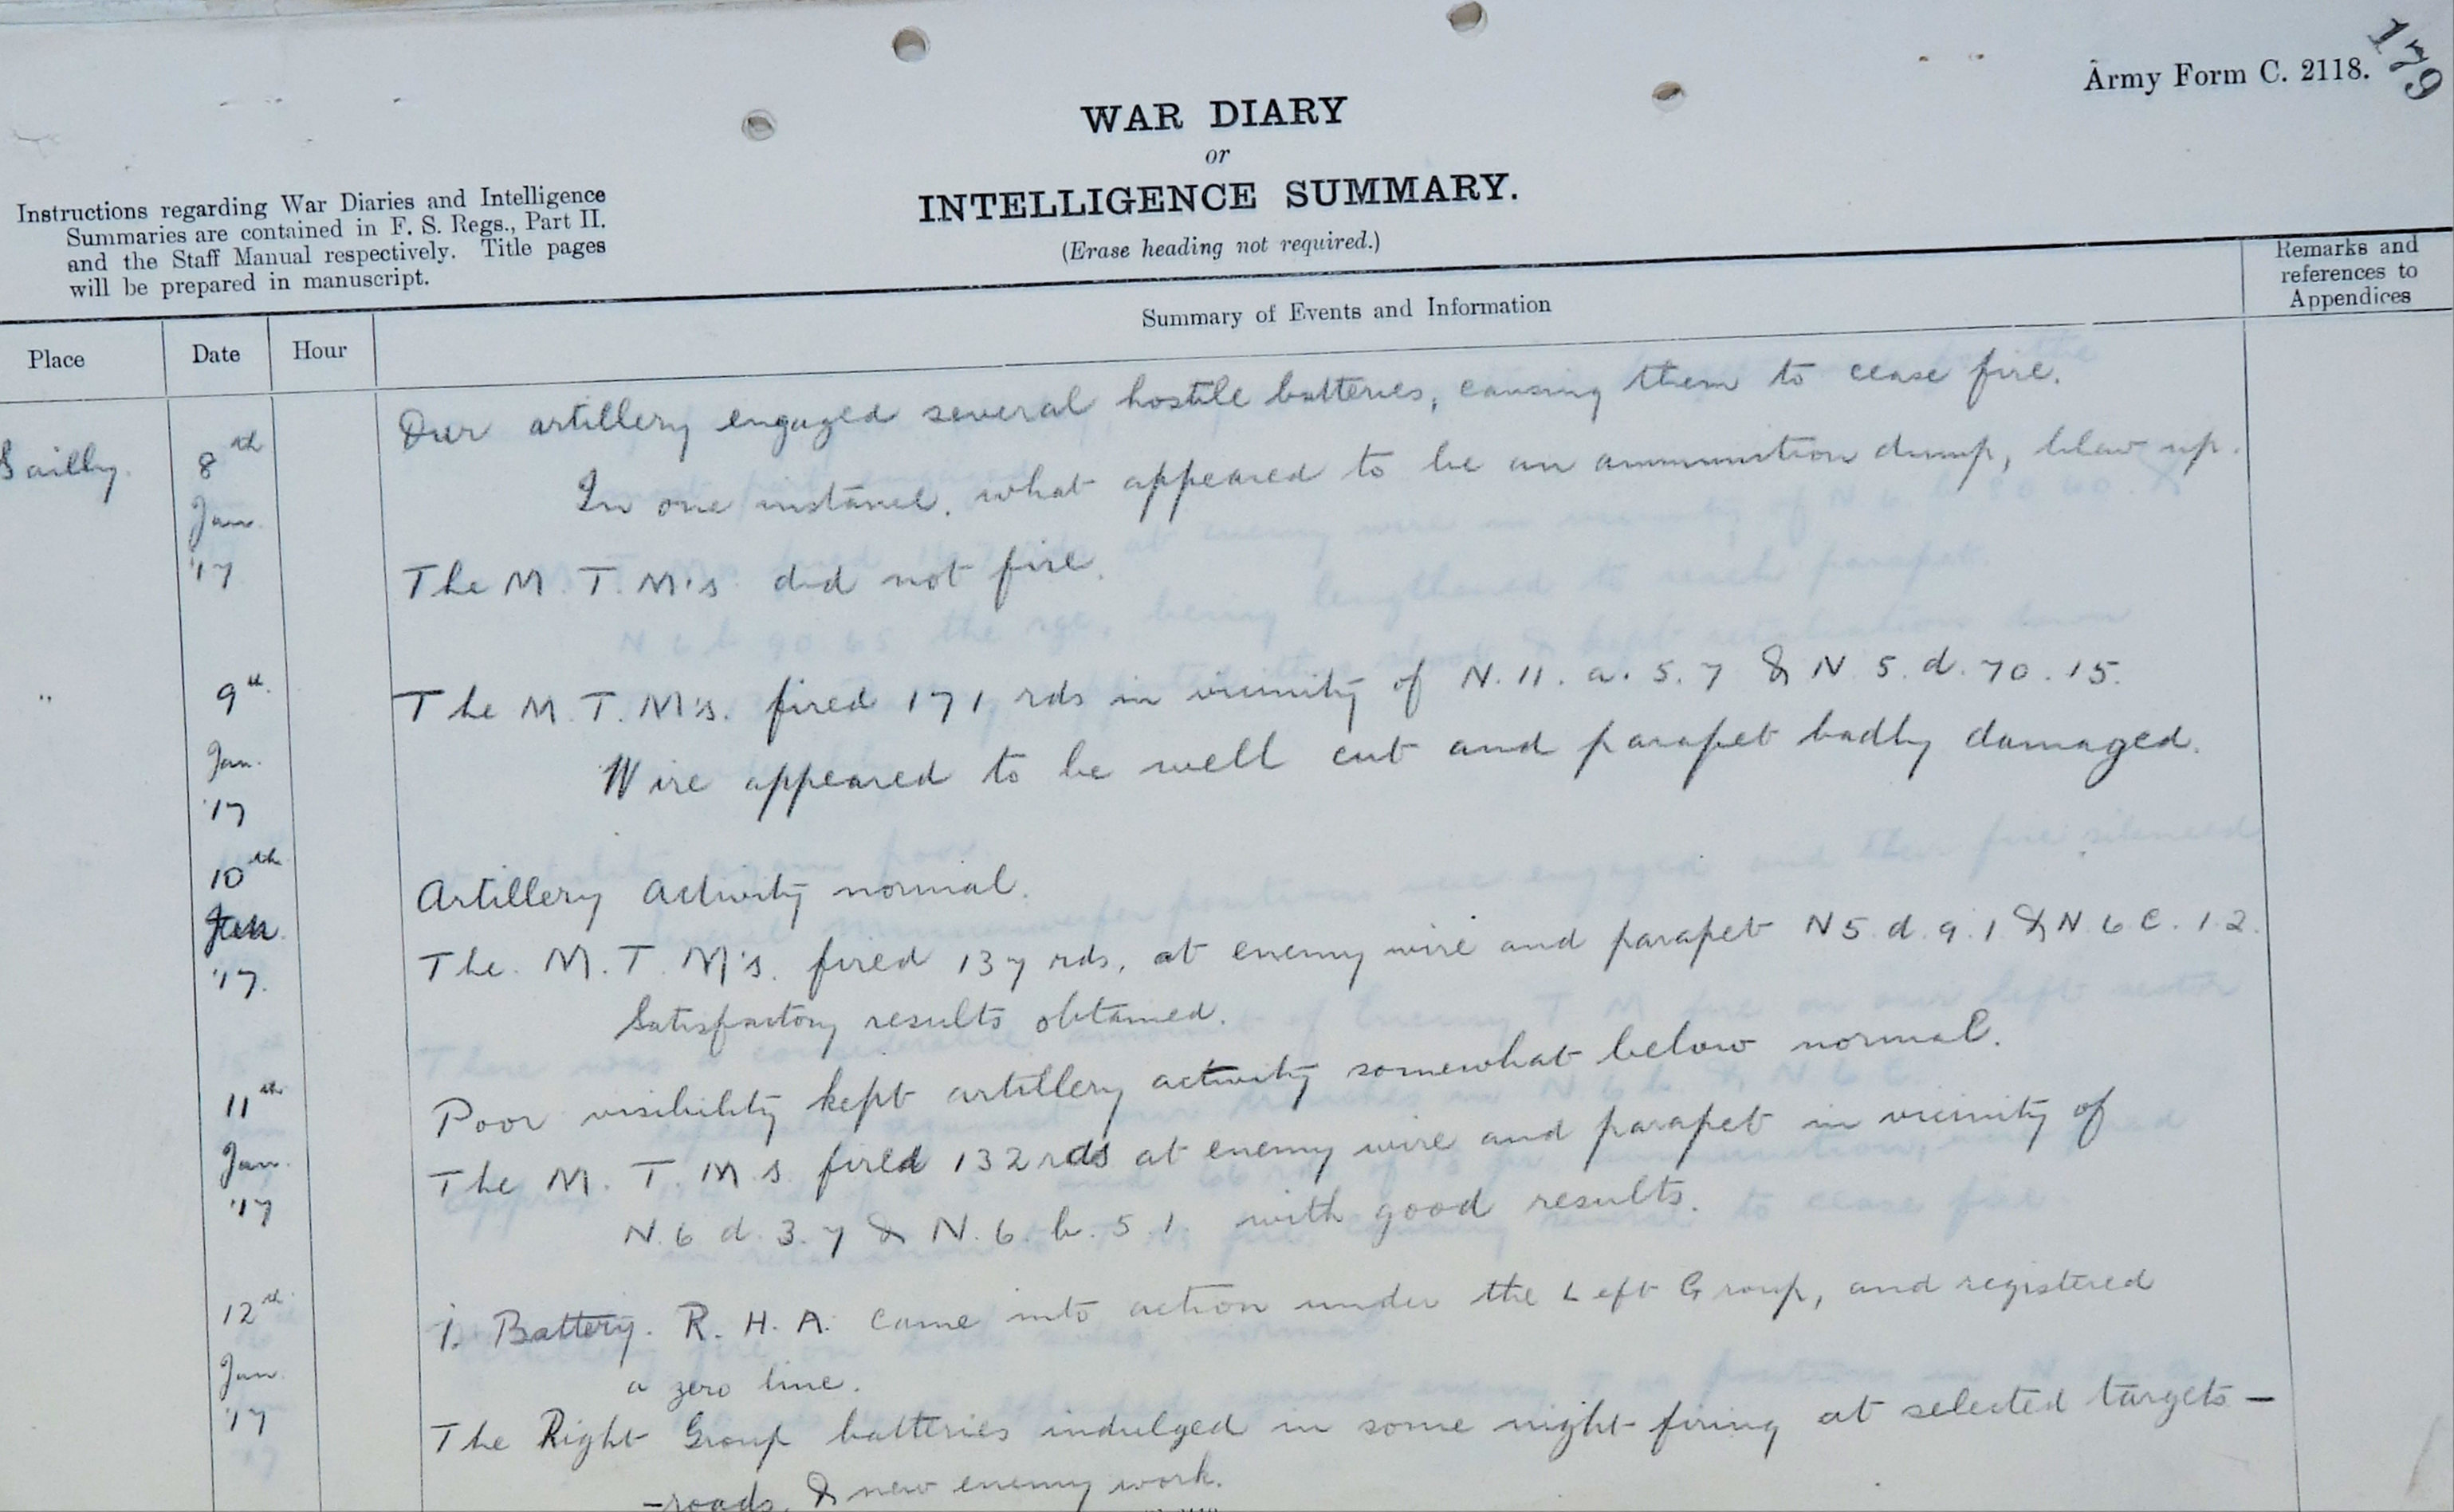 179
Army Form C. 2118.
WAR DIARY
or
INTELLIGENCE SUMMARY.
(Erase heading not required.)
Instructions regarding War Diaries and Intelligence
Summaries are contained in F. S. Regs., Part II.
and the Staff Manual respectively. Title pages
will be prepared in manuscript.
Place Date Hour Summary of Events and Information
Remarks and
references to
Appendices
Sailly. 8th Our artillery engaged several hostile batteries, causing them to cease fire.
Jan. In one instance, what appeared to be an ammunition dump, blew up.
'17 The M. T. M's did not fire.
" 9th The M. T. M's. fired 171 rds in vicinity of N. 11. a. 5. 7 & N. 5. d. 70. 15.
Jan. Wire appeared to be well cut and parapet badly damaged.
'17
10th Artillery activity normal.
Jan. The M. T. M's. fired 137 rds, at enemy wire and parapet N 5. d. 9. 1 & N. 6 c. 1. 2.
'17. Satisfactory results obtained.
11th Poor visibility kept artillery activity somewhat below normal.
Jan. The M. T. M s fired 132 rds at enemy wire and parapet in vicinity of
'17 N. 6 d. 3. 7 & N. 6. b. 5 1. with good results.
12th Battery. R. H. A. came into action under the Left Group, and registered
Jan. a zero line.
'17 The Right Group batteries indulged in some night firing at selected targets —
— roads, & new enemy work.